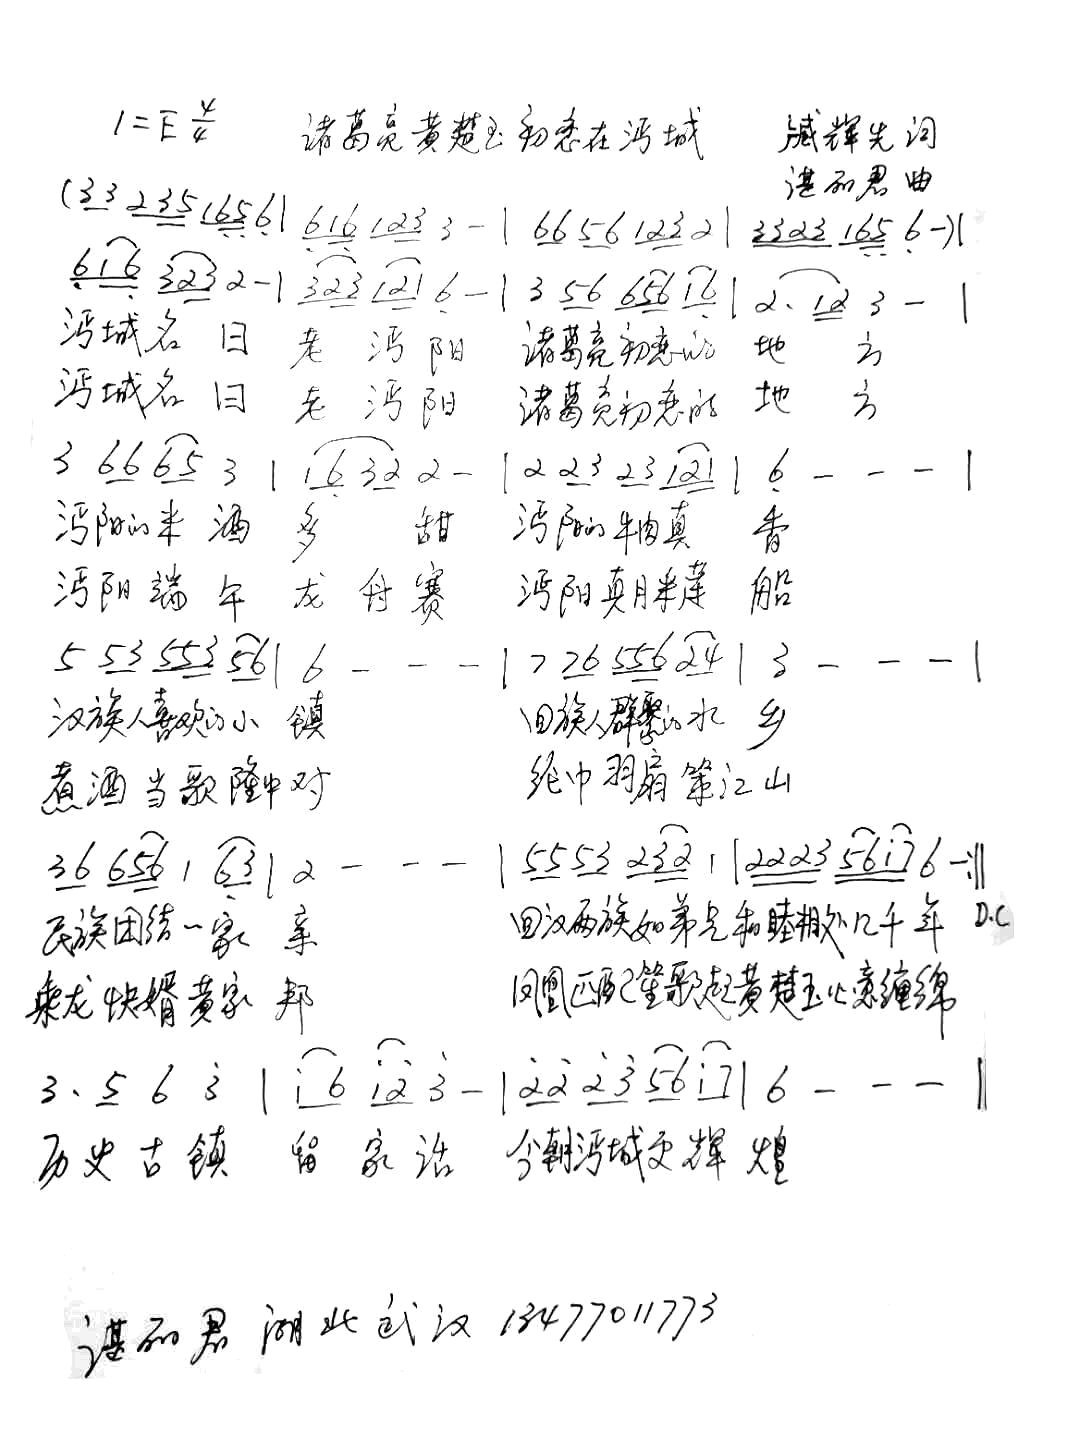 1=E 4/4 诸葛亮黄楚玉初恋在沔城 臧辉先词
谌丽君曲
(33 235 1656| 616 123 3 -| 66 56 123 2| 3323 165 6 -)|
616 323 2 -| 323 121 6 -| 3 56 656 16| 2. 12 3 - |
沔城名曰 老沔阳 诸葛亮初恋的地方
沔城名曰 老沔阳 诸葛亮初恋的地方
3 66 65 3 | 16 32 2 -| 2 23 23 121| 6 - - - |
沔阳的米酒多甜 沔阳的牛肉真香
沔阳端午龙舟赛 沔阳真月米莲船
5 53 553 56| 6 - - - | 7 76 556 24| 3 - - - |
汉族人喜欢的小镇 回族人群聚的水乡
煮酒当歌隆中对 纶巾羽扇策江山
36 656 1 63| 2 - - - | 5553 232 1| 2223 56i7 6 -:||
民族团结一家亲 回汉两族如弟兄和睦相处几千年 D.C
乘龙快婿黄家邦 凤凰匹配笙歌起黄楚玉恋缠绵
3. 5 6 3 | i6 i2 3 -| 22 23 56 i7| 6 - - - ||
历史古镇留家话 今朝沔城更辉煌
谌丽君 湖北武汉 13477011773